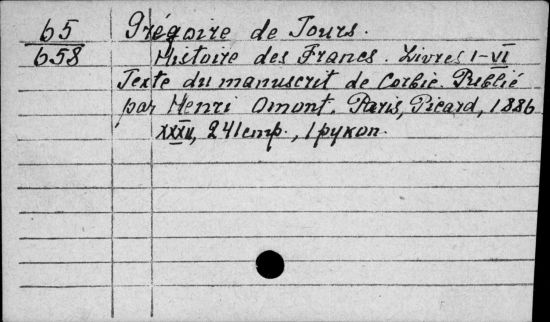 65 Grégoire de Tours.
658 Histoire des Francs. Livres I-VI
Texte du manuscrit de Corbie. Publié
par Henri Omont. Paris, Picard, 1886
XXXII, 241 стр., 1 рукоп.